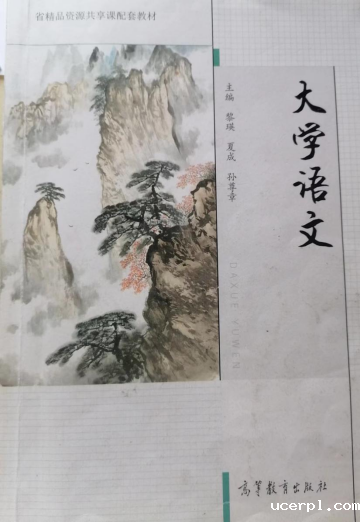 省精品资源共享课配套教材
大学语文
主编 黎瑛 夏成 孙尊章
DAXUE YUWEN
高等教育出版社
ucerpl.com